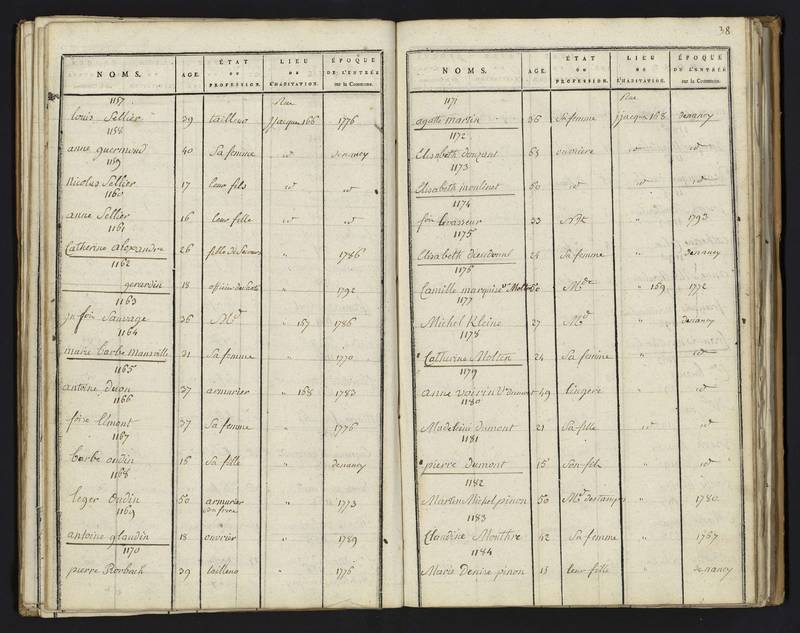 NOMS. AGE. ÉTAT OU PROFESSION. LIEU DE L'HABITATION. ÉPOQUE DE L'ENTRÉE sur la Commune.
1157 Rue
Louis Sellier 39 tailleur jjacque 166 1776
1158
anne 40 Sa femme id denancy
1159
Nicolas Sellier 17 leur fils id id
1160
anne Sellier 16 leur fille id id
1161
Catherine alexandre 26 fille de " 1786
1162
gerardin 18 " 1792
1163
jn fois Sauvage 36 Md " 167 1786
1164
marie barbe 31 Sa femme " 1770
1165
antoine 37 armurier " 168 1783
1166
foise 37 Sa femme " 1776
1167
barbe oudin 15 Sa fille " denancy
1168
leger Oudin 50 armurier " 1773
1169
antoine glaudin 18 ouvrier " 1789
1170
pierre Rorbach 39 tailleur " 1775
38
NOMS. AGE. ÉTAT OU PROFESSION. LIEU DE L'HABITATION. ÉPOQUE DE L'ENTRÉE sur la Commune.
1171 Rue
agathe martin 36 Sa femme jjacque 168 denancy
1172
Elisabeth 65 ouvrière id id
1173
Elisabeth moulinet 60 id id id
1174
fois Levasseur 33 " 1793
1175
Elisabeth dieudonné 28 Sa femme " denancy
1176
Camille marquise 60 Mde " 169 1772
1177
Michel Kleine 27 Md " denancy
1178
Catherine Molten 24 Sa femme " id
1179
anne voirin Ve Dumont 49 lingere " id
1180
Madeleine Dumont 21 Sa fille id id
1181
pierre Dumont 15 Son fils " id
1182
Martin Michel pinon 50 Md destampes " 1780
1183
Claudine Monthre 42 Sa femme " 1767
1184
Marie Denise pinon 15 leur fille " denancy